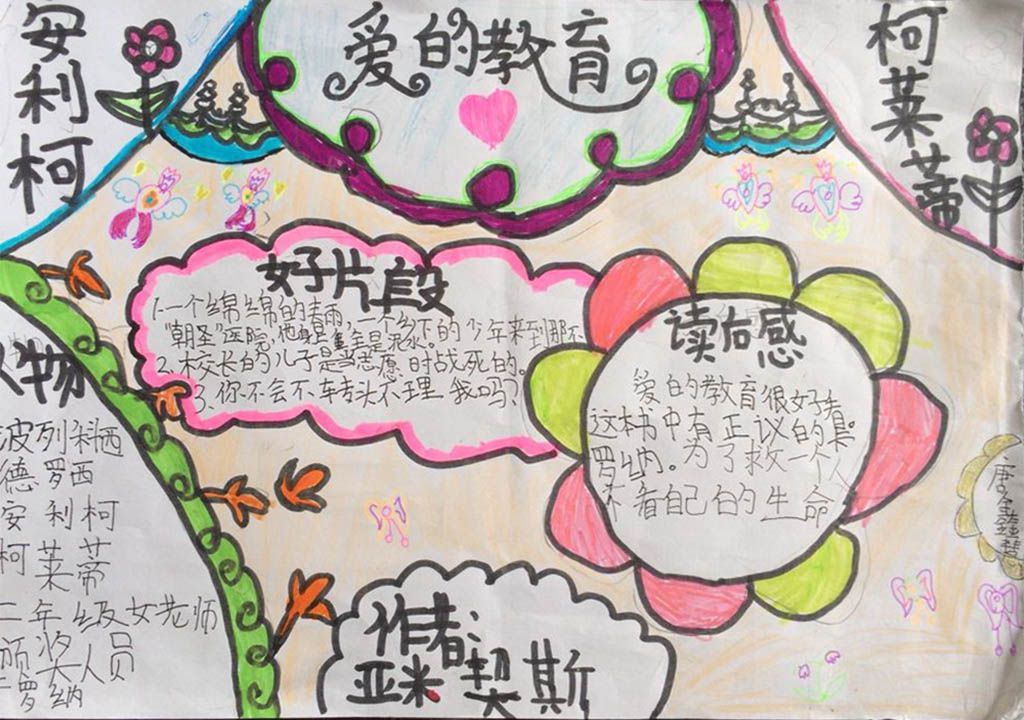 爱的教育
安利柯
柯莱蒂
好片段
1.一个绵绵的
"朝圣"医院,他身 全是泥水。一个乡下的少年来到那
2.校长的儿子是当志愿时战死的。
3.你不会不车专头不理我吗?
读右感
爱的教育很好看
这本书中有正议的集
罗纳。为了救一个人
不看自己白的生命
人物
波列科西
德罗西
安利柯
柯莱蒂
二年级女老师
颁奖人员
罗纳
作者:
亚米契斯